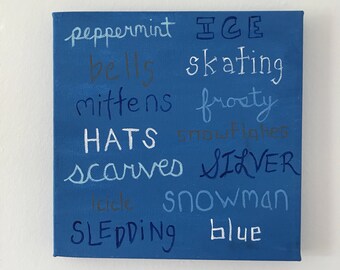 peppermint ICE
bells skating
mittens frosty
HATS snowflakes
scarves SILVER
snowman
SLEDDING blue